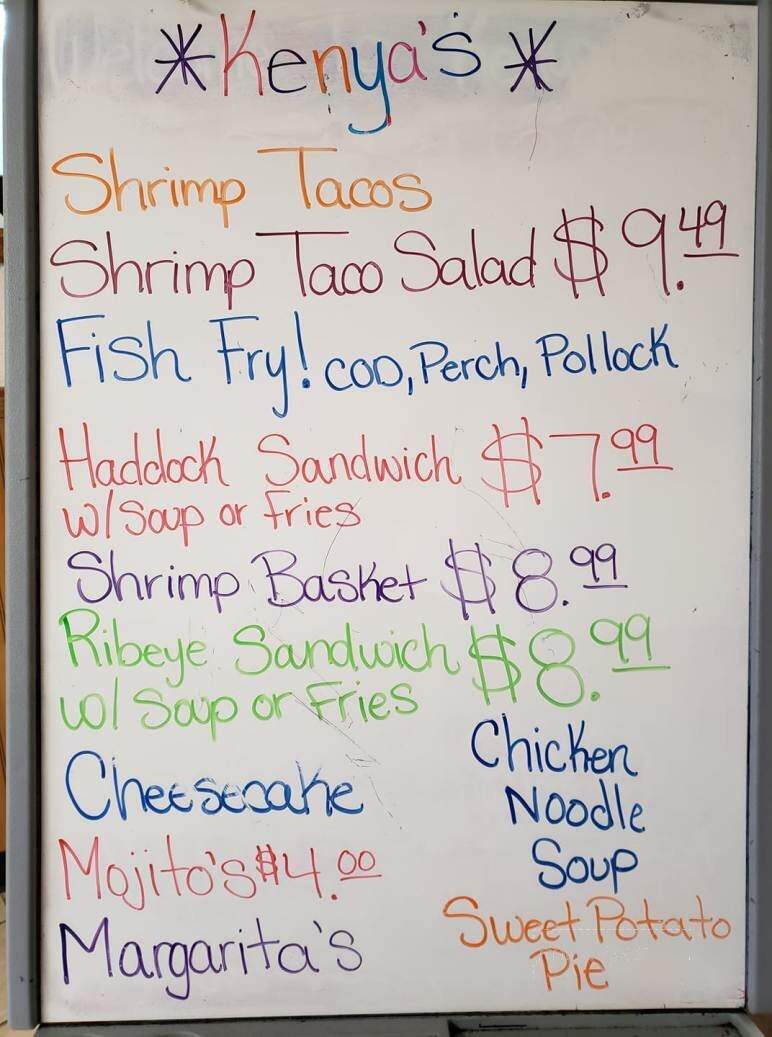 *Kenya's*
Shrimp Tacos
Shrimp Taco Salad $9.49
Fish Fry! COD, Perch, Pollock
Haddock Sandwich $7.99
w/ Soup or Fries
Shrimp Basket $8.99
Ribeye Sandwich $8.99
w/ Soup or Fries
Cheesecake
Mojito's $4.00
Margarita's
Chicken
Noodle
Soup
Sweet Potato
Pie